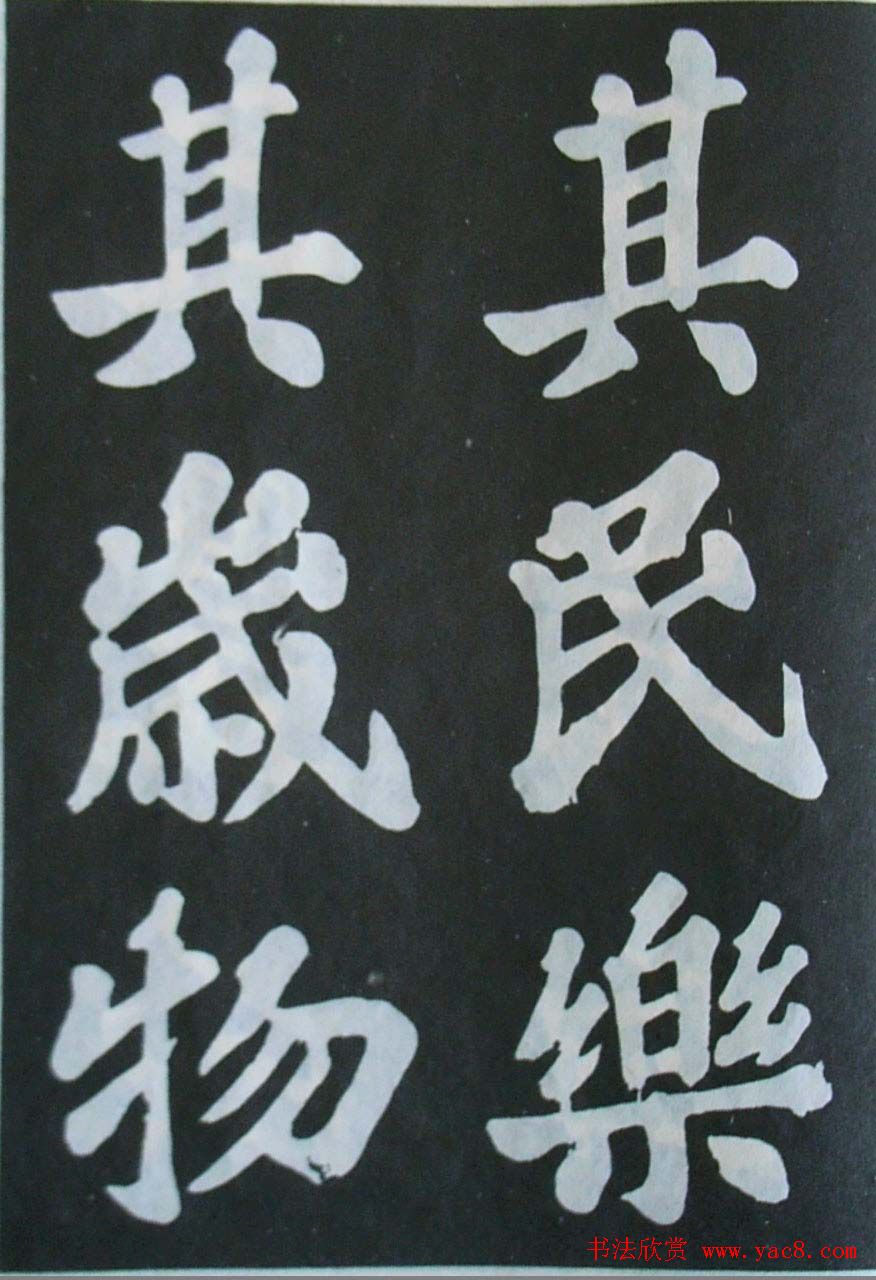 其民樂
其歲物
书法欣赏 www.yac8.com